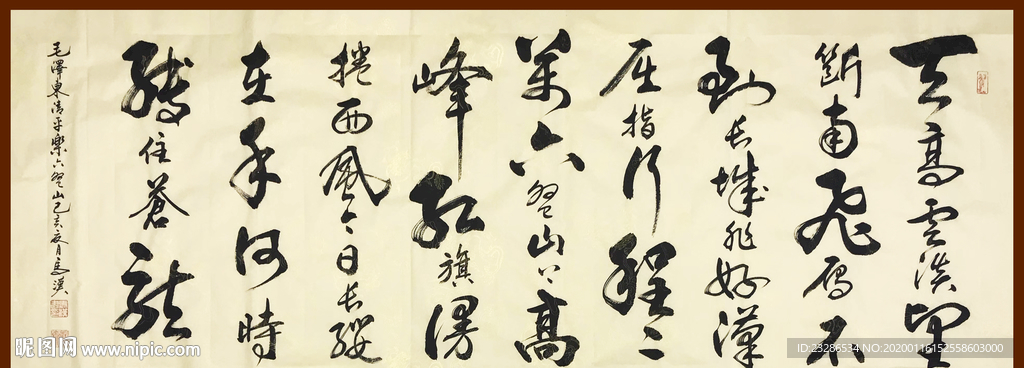 天高雲淡望
斷南飛雁不
到長城非好漢
屈指行程二
萬六盤山上高
峰紅旗漫
捲西風今日長纓
在手何時
縛住蒼龍
毛澤東清平樂六盤山己亥夏月馬漢
昵图网 www.nipic.com
ID:23286534 NO:20200116152558603000